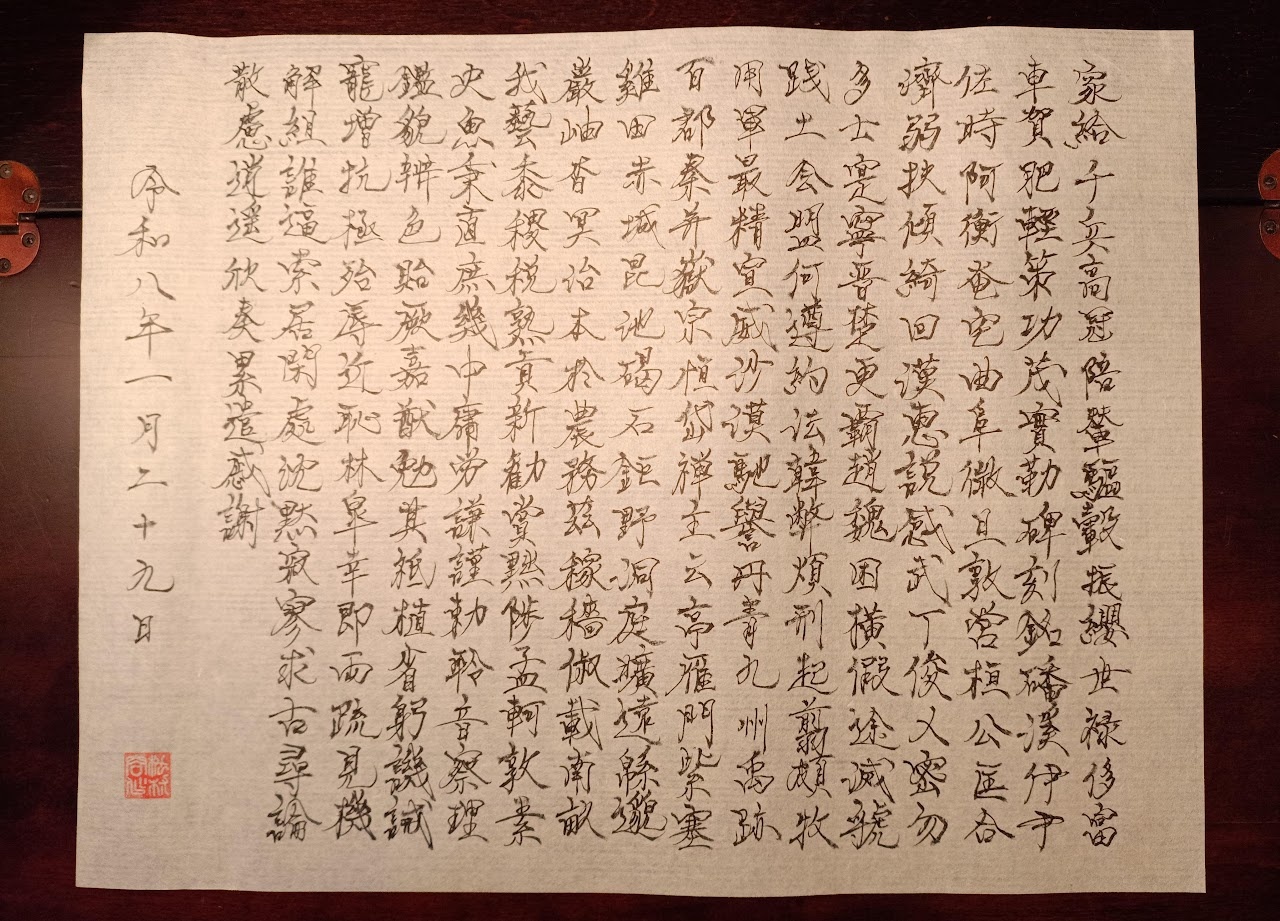 家給千兵高冠陪輦驅轂振纓世禄侈富
車賀肥輕策功茂實勒碑刻銘磻溪伊尹
佐時阿衡奄宅曲阜微旦孰營桓公匡合
濟弱扶傾綺回漢惠説感武丁俊乂密勿
多士寔寧晉楚更霸趙魏困橫假途滅虢
践土会盟何遵約法韓弊煩刑起翦頗牧
用軍最精宣威沙漠馳譽丹青九州禹跡
百郡秦并嶽宗恒岱禅主云亭雁門紫塞
雞田赤城昆池碣石鉅野洞庭曠遠緜邈
巖岫杳冥治本於農務茲稼穡俶載南畝
我藝黍稷税熟貢新勧賞黜陟孟軻敦素
史魚秉直庶幾中庸労謙謹勅聆音察理
鑑貌辨色貽厥嘉猷勉其祗植省躬譏誡
寵増抗極殆辱近恥林皐幸即両疏見機
解組誰逼索居閑處沈黙寂寥求古尋論
散慮逍遥欣奏累遣慼謝
令和八年一月二十九日